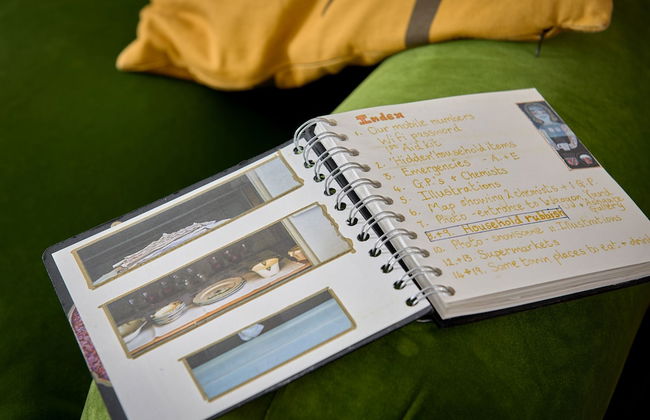 Index
1. Our mobile numbers
WiFi password
1st Aid kit
2. Hidden household items
3. Emergencies - A + E
4. G.P's + Chemists
5. Illustrations
6. Map showing 2 chemists + 1 G.P.
Photo - entrance to
8+9. Household rubbish
Photo - 11. Illustrations
12+13. Supermarkets
14+19. Some town places to eat + drink